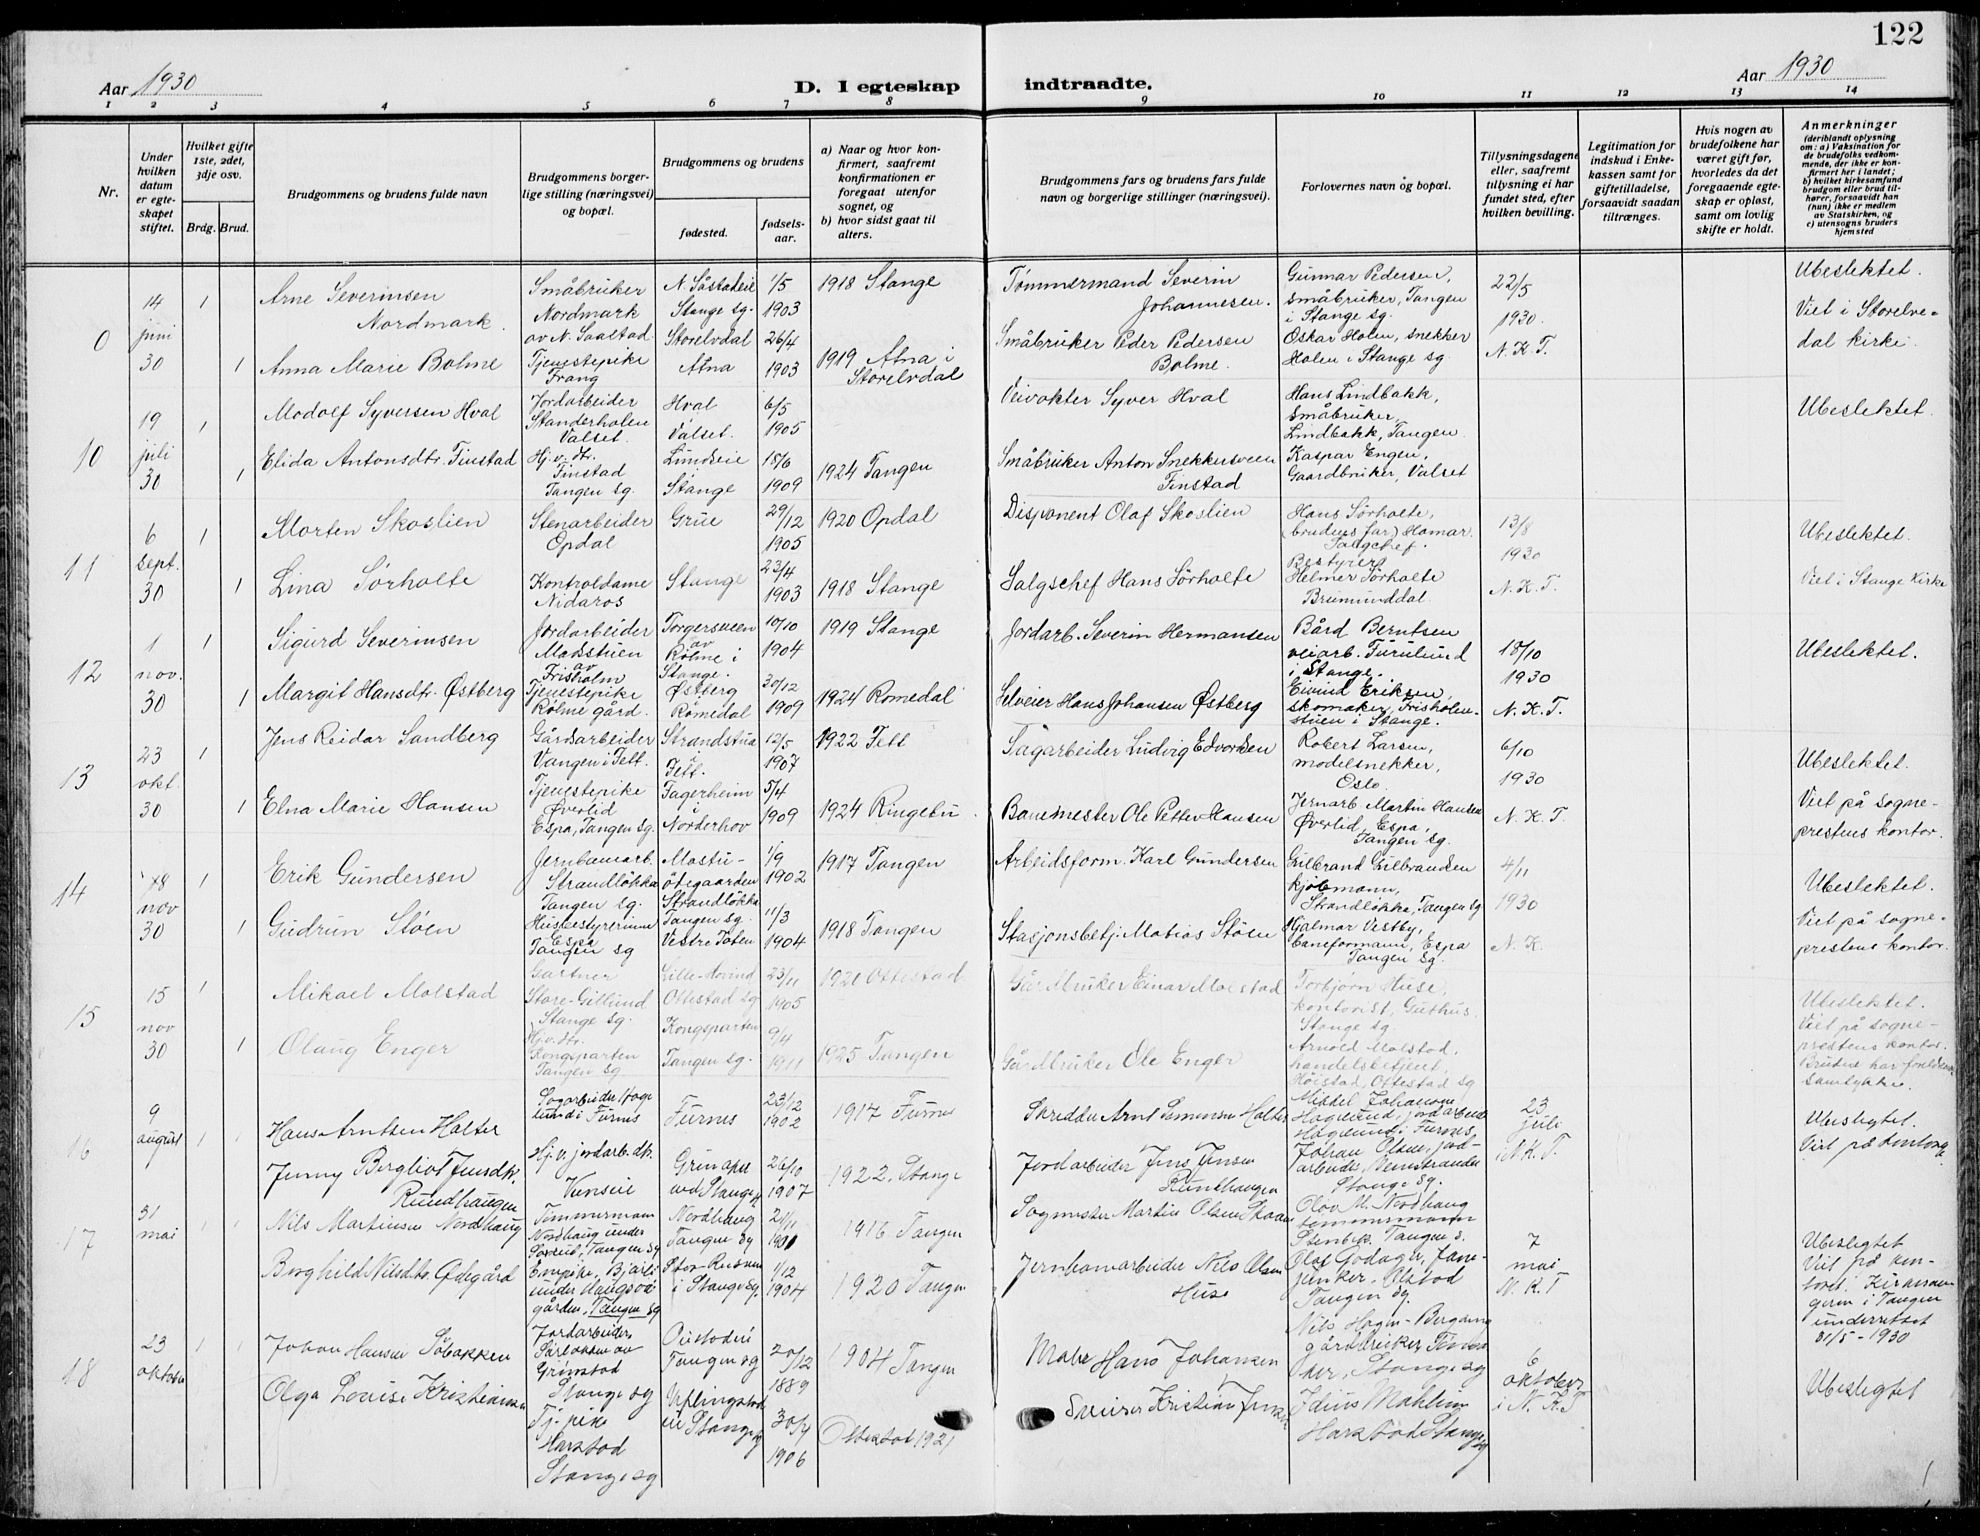 122
Aar 1930
D. I egteskap indtraadte.
Aar 1930
1 2 3 4 5 6 7 8 9 10 11 12 13 14
Nr.
Under hvilken datum er egteskapet stiftet.
Hvilket gifte 1ste, 2det, 3dje osv.
Brdg. Brud.
Brudgommens og brudens fulde navn
Brudgommens borgerlige stilling (næringsvei) og bopæl.
Brudgommens og brudens
fødested. fødselsaar.
a) Naar og hvor konfirmert, saafremt konfirmationen er foregaat utenfor sognet, og
b) hvor sidst gaat til alters.
Brudgommens fars og brudens fars fulde navn og borgerlige stillinger (næringsvei).
Forlovernes navn og bopæl.
Tillysningsdagene eller, saafremt tillysning ei har fundet sted, efter hvilken bevilling.
Legitimation for indskud i Enkekassen samt for giftetilladelse, forsaavidt saadan tiltrænges.
Hvis nogen av brudefolkene har været gift før, hvorledes da det foregaaende egteskap er opløst, samt om lovlig skifte er holdt.
Anmerkninger
(deriblandt oplysning om: a) Vaksination for de brudefolks vedkommende, der ikke er konfirmert her i landet; b) hvilket kirkesamfund brudgom eller brud tilhører, forsaavidt han (hun) ikke er medlem av Statskirken, og c) utensogns bruders hjemsted
0
14 juni 30
1
Arne Severinsen Nordmark.
Småbruker Nordmark av N. Saastad
Stange sg.
1/5 1903
1918 Stange
Tømmermand Severin Johannesen.
Gunnar Pedersen, småbruker, Tangen i Stange sg.
22/5 1930. N. K. T.
Ubeslektet.
Viet i Storelvedal kirke.
1
Anna Marie Bolme
Tjenestepike Frang
Storelvdal Atna
26/4 1903
1919 Atna i Storelvdal
Småbruker Peder Pedersen Bolme.
Oskar Holen, snekker Holen i Stange sg.
10
19 juli 30
1
Modolf Syversen Hval
Jordarbeider Standerholen Valset.
Hval Valset.
6/5 1905
Veivokter Syver Hval
Hans Lindbakk, småbruker, Lindbakk, Tangen.
Ubeslektet.
1
Elida Antonsdtr. Finstad
Hj.v. dtr. Finstad Tangen sg.
Lundseie Stange
18/6 1909
1924 Tangen
Småbruker Anton Snekkersveen Finstad
Kaspar Engen, Gaardbruker, Valset
11
6 sept. 30
1
Morten Skoslien
Stenarbeider Opdal
Grue
29/12 1905
1920 Opdal
Disponent Olaf Skoslien
Hans Sørholte, (brudens far) Hamar. Salgschef.
13/8 1930 N. K. T.
Ubeslektet.
Viet i Stange Kirke
1
Lina Sørholte
Kontroldame Nidaros
Stange
23/4 1903
1918 Stange
Salgschef Hans Sørholte
Bestyrer Helmer Sørholte Brumunddal.
12
1 nov. 30
1
Sigurd Severinsen
Jordarbeider Madsstuen av Frisholm
Torgersveen av Rølme i Stange.
10/10 1904
1919 Stange
Jordarb. Severin Hermansen
Bård Berntsen veiarb. Furulund i Stange.
18/10 1930 N. K. T.
Ubeslektet.
1
Margit Hansdtr. Østberg
Tjenestepike Rølme gård.
Østberg Romedal
30/12 1909
1924 Romedal
Selveier Hans Johansen Østberg
Eivind Eriksen, skomaker, Frisholmstuen i Stange.
13
23 okt. 30
1
Jens Reidar Sandberg
Gårdsarbeider Vangen i Fett.
Strandstua Fett.
12/5 1907
1922 Fett
Sagarbeider Ludvig Edvardsen
Robert Larsen, modelsnekker, Oslo.
6/10 1930 N. K. T.
Ubeslektet.
Viet på sogneprestens kontor.
1
Elna Marie Hansen
Tjenestepike Øverlid Espa, Tangen sg.
Fagerheim i Norderhov
5/4 1909
1924 Ringebu.
Banemester Ole Petter Hansen
Jernarb. Martin Hansen Øverlid, Espa, Tangen sg.
14
18 nov 30
1
Erik Gundersen
Jernbanearb. Strandløkka Tangen sg.
Mostuødegaarden Strandløkka Tangen sg.
1/9 1902
1917 Tangen
Arbeidsform. Karl Gundersen
Gulbrand Gulbrandsen kjøbmann, Strandløkka, Tangen sg
4/11 1930 N. K.
Ubeslektet.
Viet på sogneprestens kontor.
1
Gudrun Støen
Husbestyrerinne Espa Tangen sg
Vestre Toten
11/3 1904
1918 Tangen
Stasjonsbetj. Matias Støen
Hjalmar Vestby, baneformann, Espa Tangen sg.
15
15 nov 30
1
Mikael Molstad
Gartner Store-Gillund Stange sg.
Lille-Hovind Ottestad sg
23/11 1905
1920 Ottestad
Gårdbruker Einar Molstad
Torbjørn Huse, kontorist, Guthus, Stange sg.
Ubeslektet.
Viet på sogneprestens kontor.
Brudene har foreldrenes samtykke.
1
Olaug Enger
Hj.v.dtr. Kongsparten Tangen sg
Kongsparten Tangen sg.
9/4 1911
1925 Tangen
Gårdbruker Ole Enger
Arnold Molstad, handelsbetjent, Høistad, Ottestad sg
16
9 august
1 1
Hans Arntsen Holter
Sagarbeider Haglund i Furnes
Furnes
23/12 1902
1917 Furnes
Skredder Arnt Holter
Haglund, jordarbeider Haglund i Furnes,
23 juli N. K. T.
Ubeslegtet.
Viet på kontoret
Jenny Bergliot Jensdtr. Rundhaugen
Hj.v. jordarb. dtr.
ved Stange
26/10 1907
1922. Stange
Jordarbeider Jens Jensen Rundhaugen
Johan Olsen, jordarbeider, Stange sg.
17
31 mai
1 1
Nils Martinsen Nordhaug
Tømmermann Nordhaug under Tangen sg
Nordhaug Tangen sg
1916 Tangen
Sagmester Martin Olsen
Olov M. Nordhaug tømmermann Tangen s.
7 mai N. K. T
Ubeslegtet
Viet på kontoret. i Tangen underrettet 31/5 - 1930
Borghild Nilsdtr. Ødegård
under Tangen sg
i Stange sg.
1/12 1904
1920 Tangen
Jernbanearbeider Nils Olsen Huse
Olaf Tangen sg.
18
23 oktober
1 1
Johan Hansen Søbakken
Jordarbeider Stange sg
Tangen sg
20/12 1889
1904 Tangen
Maler Hans Johansen
Nils gårdbruker Stange sg
6 oktober i N. K. T
Ubeslegtet
Olga Louise Kristiansen
Tj. pike Harstad Stange sg
Stange sg
30/4 1906
Ottestad 1921
Kristian
Julius Mahlum Harstad Stange sg